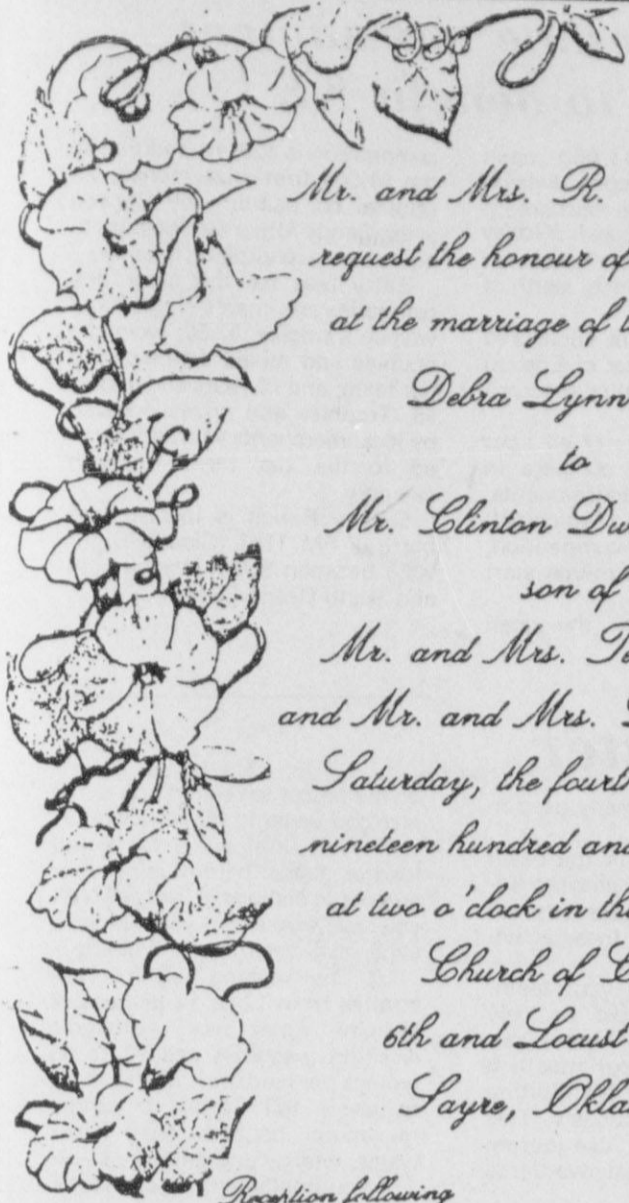 Mr. and Mrs. R.
request the honour of
at the marriage of t
Debra Lynn
to
Mr. Clinton Dw
son of
Mr. and Mrs. Te
and Mr. and Mrs.
Saturday, the fourth
nineteen hundred and
at two o'clock in th
Church of C
6th and Locust
Sayre, Okla
Reception following